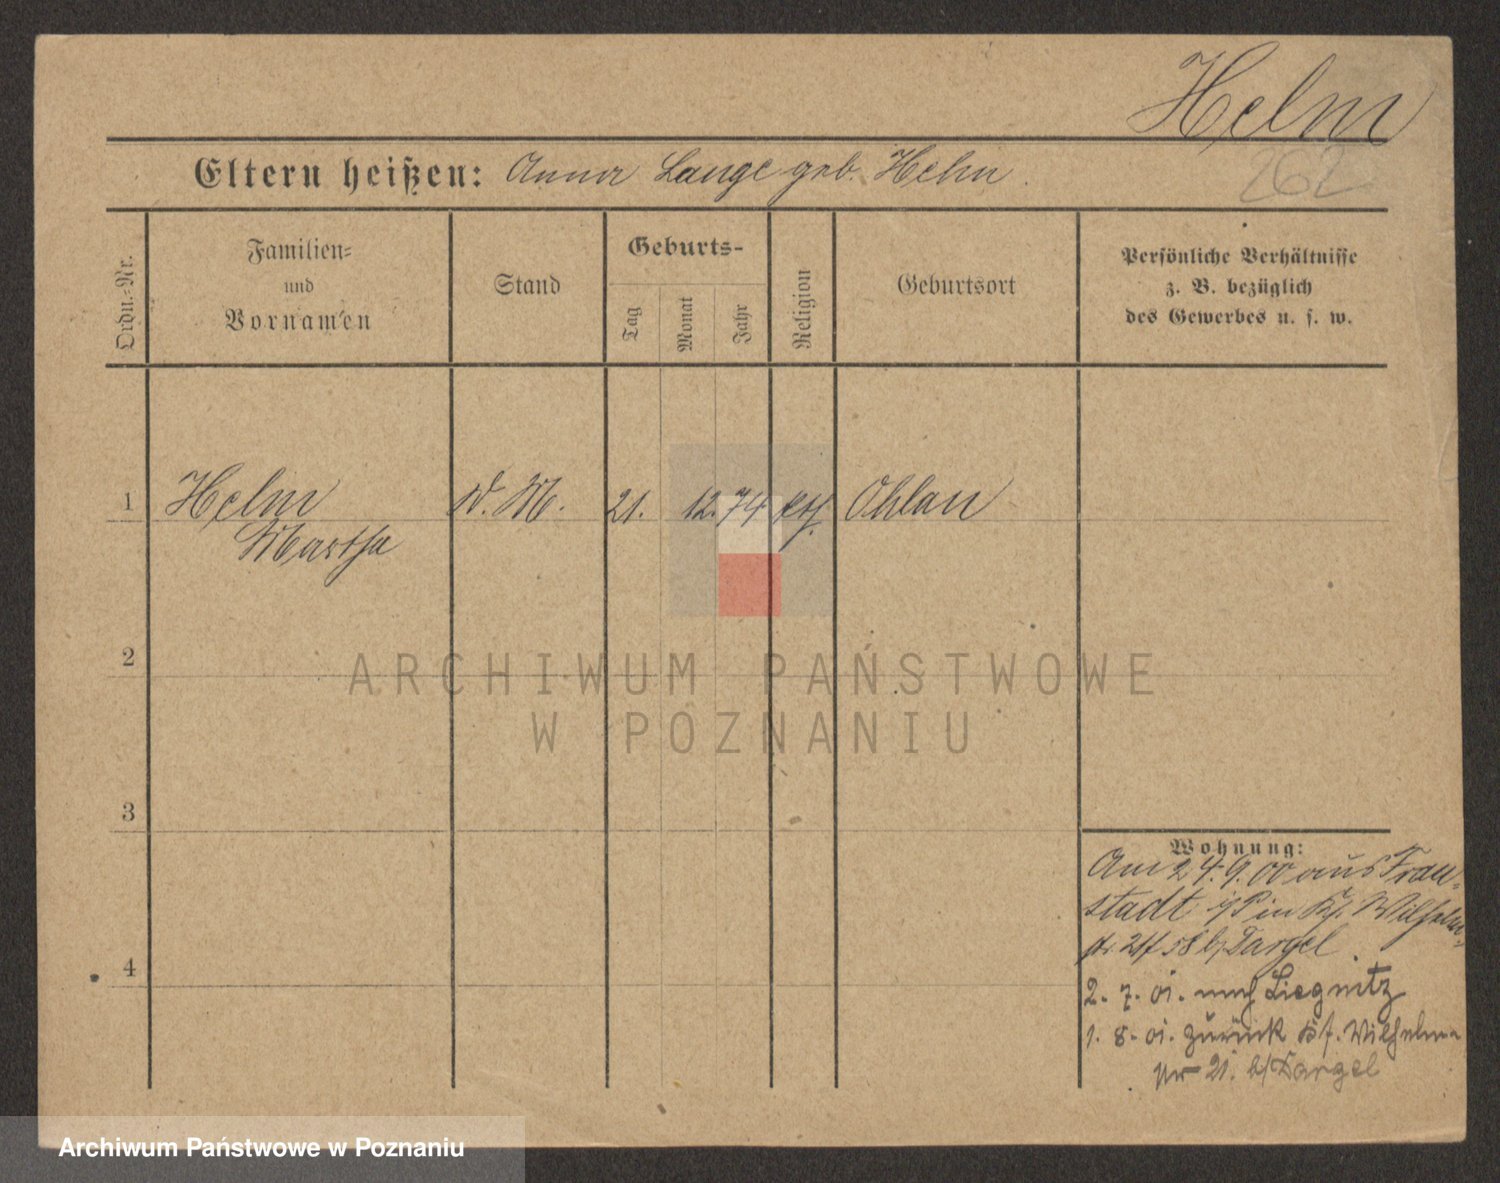 Helm
262
Eltern heißen: Anna Lange geb. Helm.
Ordn.-Nr.
Familien-
und
Vornamen
Stand
Geburts-
Tag
Monat
Jahr
Religion
Geburtsort
Persönliche Verhältnisse
z. B. bezüglich
des Gewerbes u. s. w.
1 Helm D. M. 21. 12. 74 kth. Ohlau
Martha
2
ARCHIWUM PAŃSTWOWE
W POZNANIU
3
Wohnung:
Am 24.9.00 aus Frau-
stadt i/P in Wilhelm-
str. 21 b/Dargel.
4
2. 7. 01. nach Liegnitz
1. 8. 01. zurück Wilhelm
Nr 21. b/Dargel
Archiwum Państwowe w Poznaniu